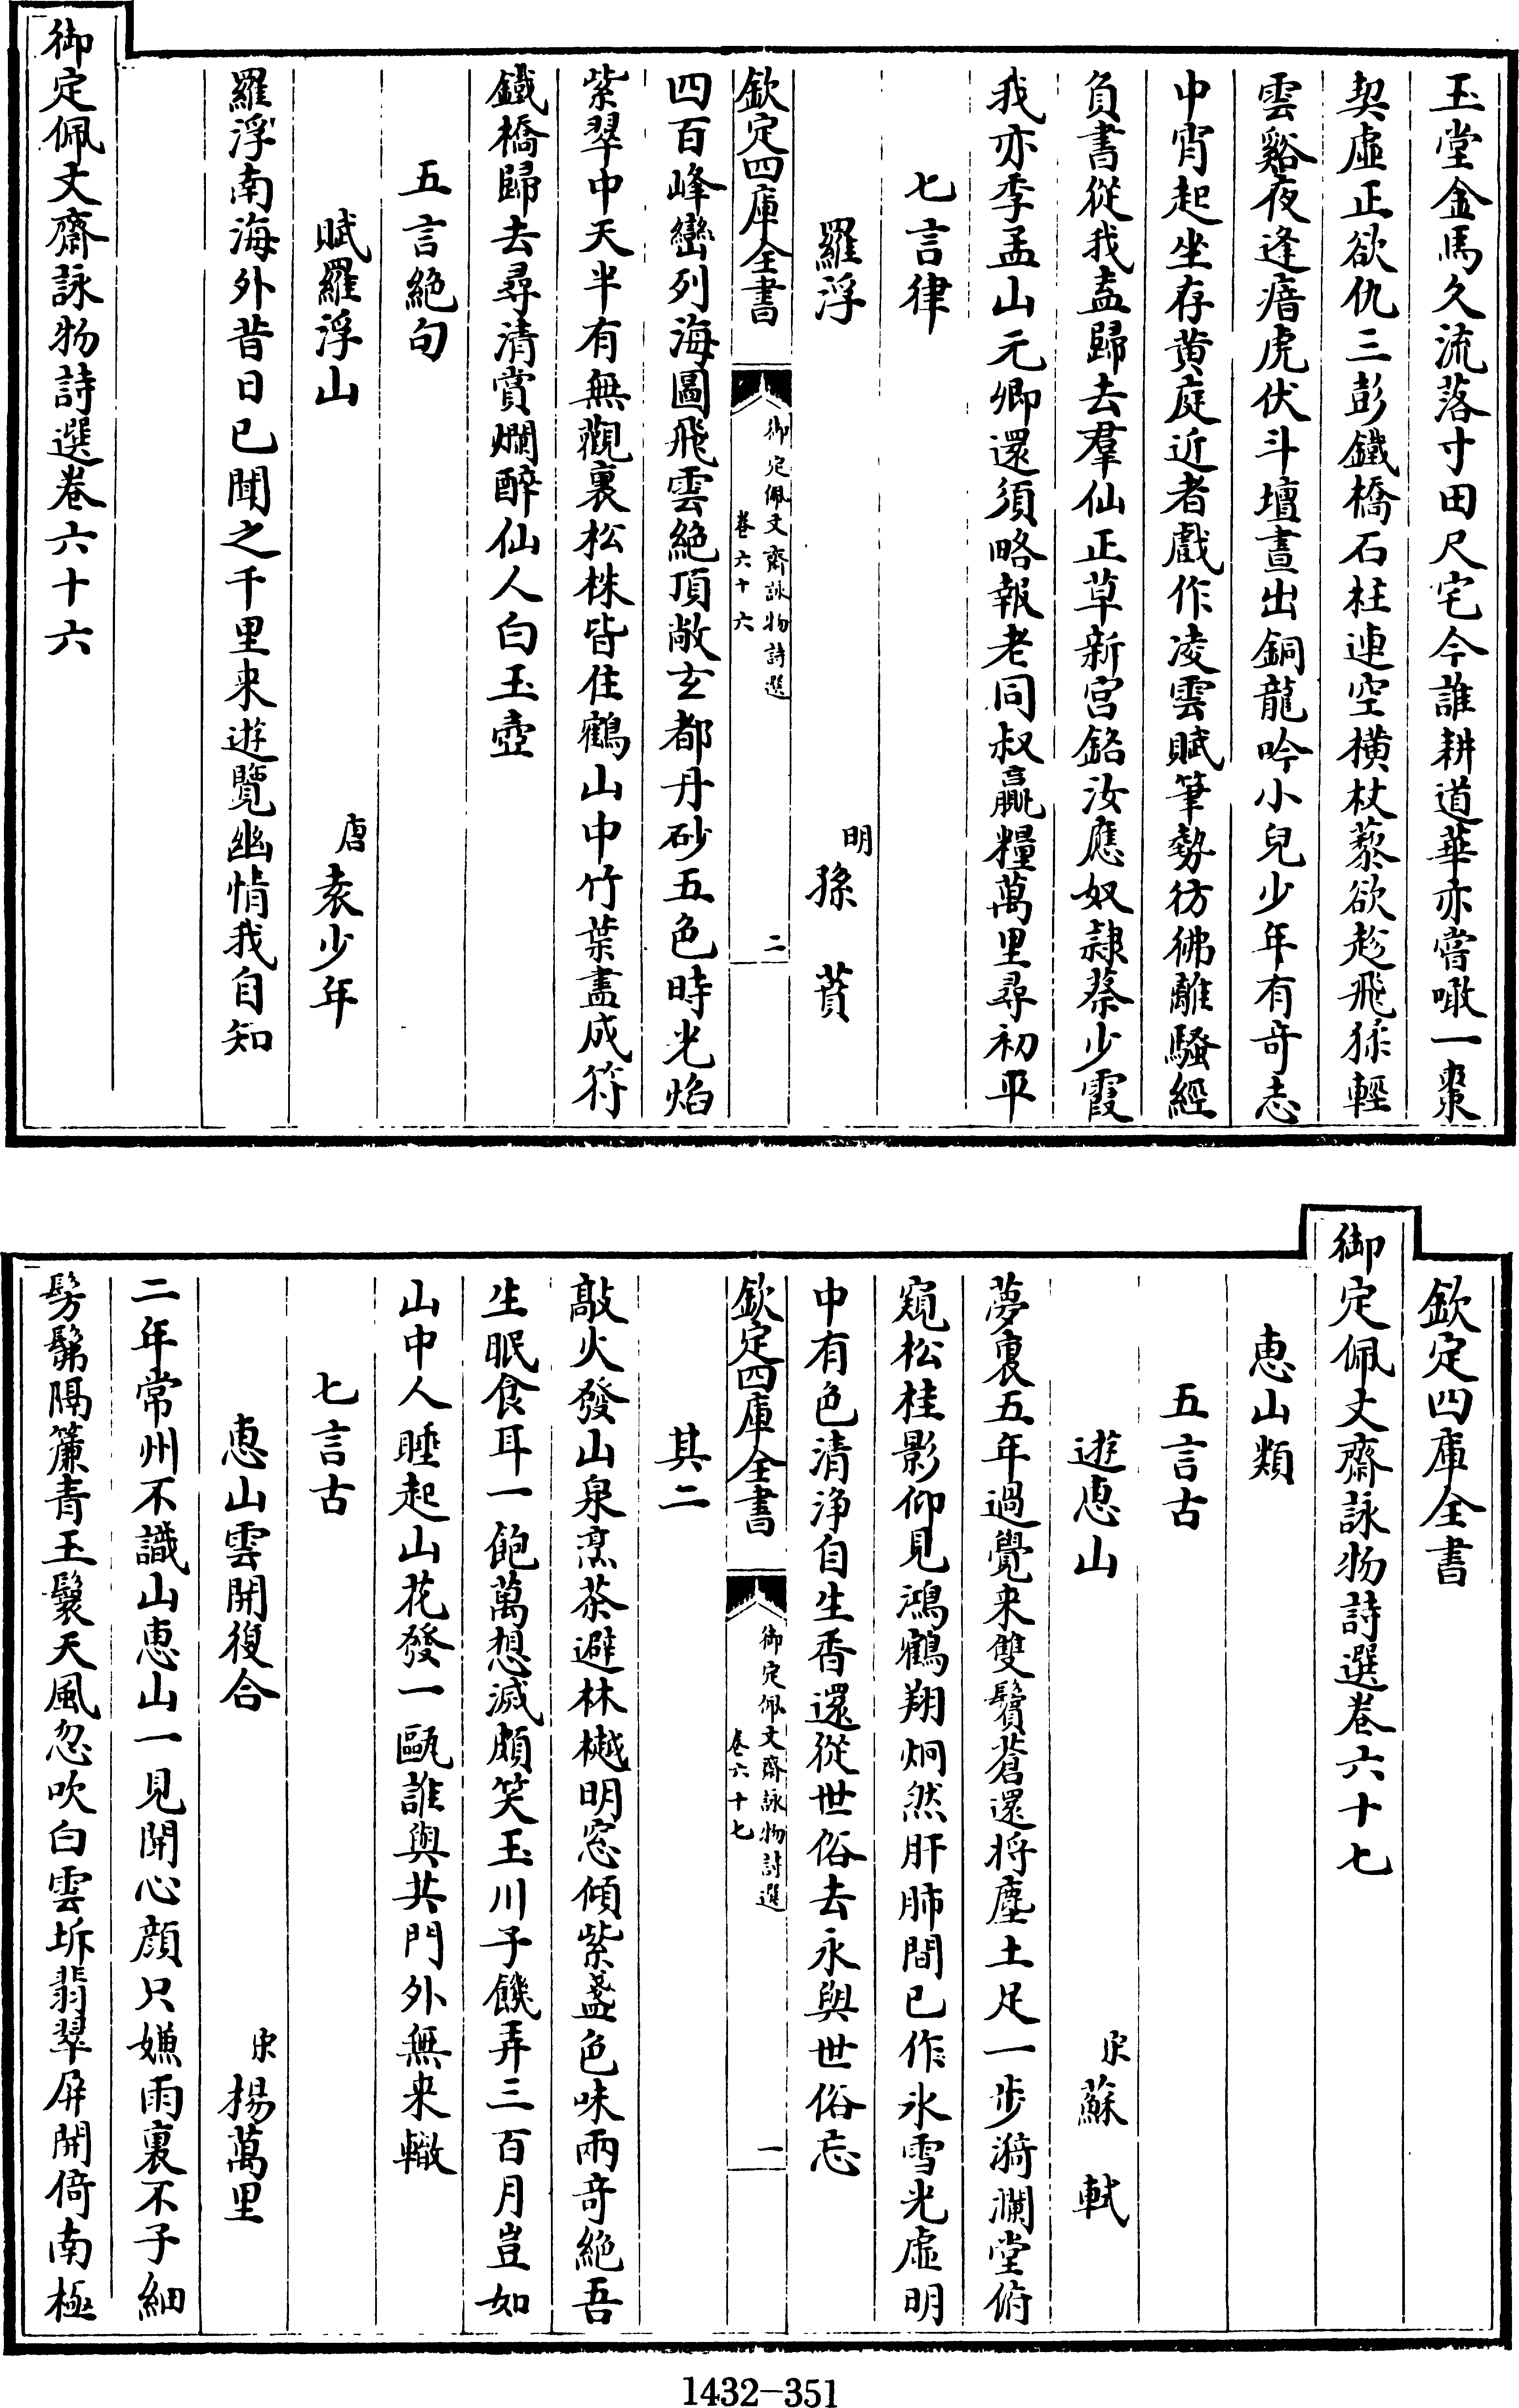 玉堂金馬久流落寸田尺宅今誰耕道華亦嘗噉一棗
契虛正欲仇三彭鐵橋石柱連空橫杖藜欲趁飛猱輕
雲谿夜逢瘖虎伏斗壇晝出銅龍吟小兒少年有奇志
中宵起坐存黃庭近者戲作凌雲賦筆勢彷彿離騷經
負書從我盍歸去羣仙正草新宮銘汝應奴隷蔡少霞
我亦季孟山元卿還須略報老同叔贏糧萬里尋初平
七言律
羅浮 明 孫蕡
欽定四庫全書 御定佩文齋詠物詩選 卷六十六 二
四百峰巒列海圖飛雲絶頂敞玄都丹砂五色時光焰
紫翠中天半有無觀裏松株皆住鶴山中竹葉盡成符
鐵橋歸去尋清賞爛醉仙人白玉壺
五言絶句
賦羅浮山 唐 袁少年
羅浮南海外昔日已聞之千里来遊覽幽情我自知
御定佩文齋詠物詩選卷六十六
欽定四庫全書
御定佩文齋詠物詩選卷六十七
惠山類
五言古
遊惠山 宋 蘇軾
夢裏五年過覺来雙鬢蒼還将塵土足一步漪瀾堂俯
窺松桂影仰見鴻鶴翔炯然肝肺間已作冰雪光虛明
中有色清浄自生香還從世俗去永與世俗忘
欽定四庫全書 御定佩文齋詠物詩選 卷六十七 一
其二
敲火發山泉烹茶避林樾明窓傾紫盞色味兩奇絶吾
生眠食耳一飽萬想滅頗笑玉川子饑弄三百月豈如
山中人睡起山花發一甌誰與共門外無来轍
七言古
惠山雲開復合 宋 楊萬里
二年常州不識山惠山一見開心顔只嫌雨裏不子細
髣髴隔簾青玉鬟天風忽吹白雲坼翡翠屏開倚南極
1432-351